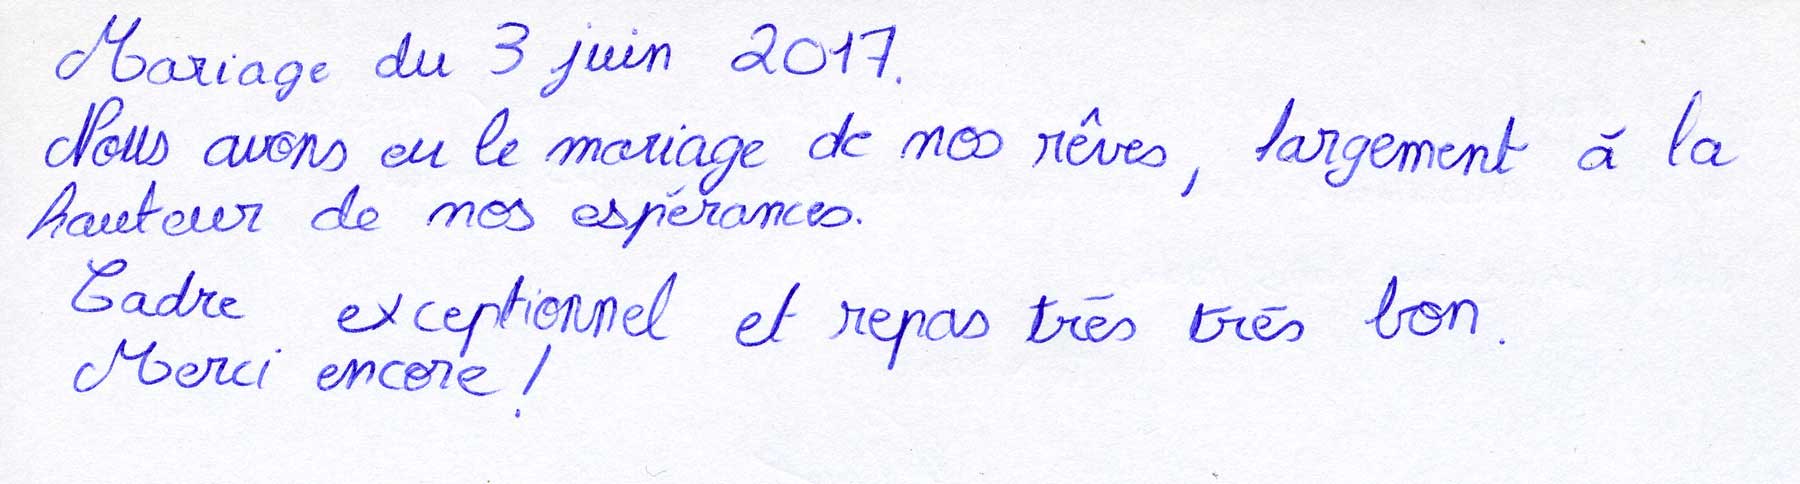 Mariage du 3 juin 2017.
Nous avons eu le mariage de nos rêves, largement à la
hauteur de nos espérances.
Cadre exceptionnel et repas très très bon.
Merci encore !